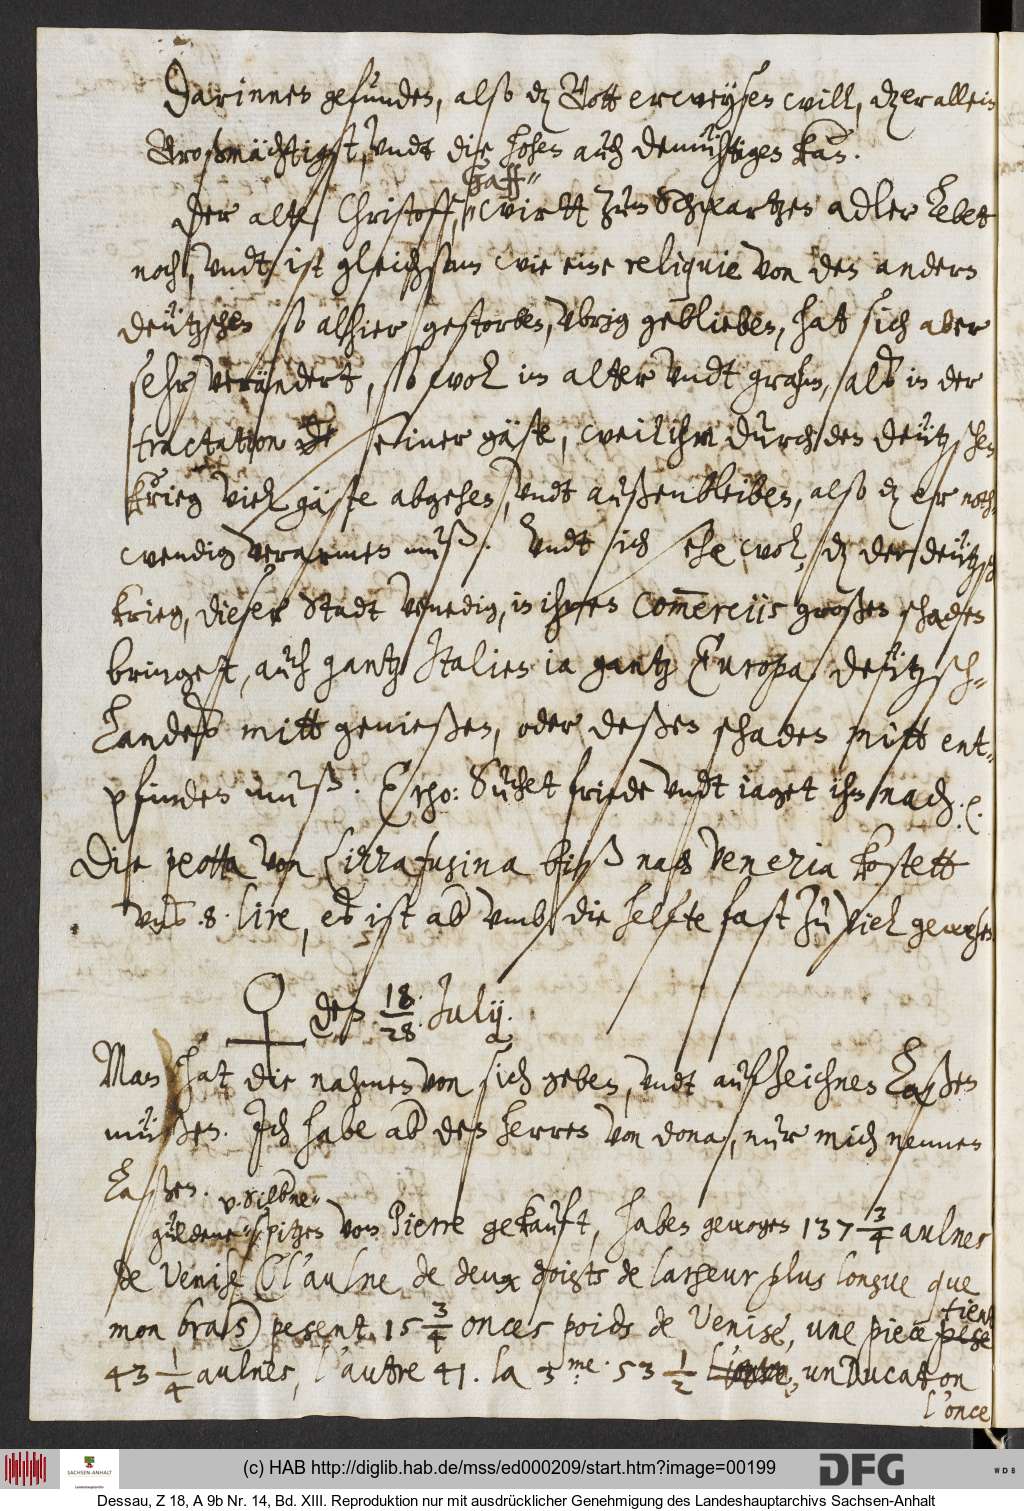 darinnen gefunden, also dz Gott erweysen will, dz er allein
Großmächtigst, undt die hohen auch demühtigen kan.
Gast-
Der alte Christoff, wirtt zum Schwartzen adler lebet
noch, undt ist gleichsam wie eine reliquie von den andern
deützschen so alhier gestorben, ubrig geblieben, hat sich aber
sehr verändert, so wol im alter undt grahm, als in der
tractation seiner gäste, weil ihm durch den deützschen
krieg viel gäste abgehen, undt außenbleiben, also dz er noht-
wendig verarmen muß. Undt ich sehe wol, dz der deützsche
krieg, dieser Stadt Venedig, in ihren Commerciis großen schaden
bringet, auch gantz Italien ia gantz Europa deützsch-
landeß mitt genießen, oder deßen schaden mitt ent-
pfinden muß. Ergo: Suchet friede undt iaget ihm nach. (.
Die peotta von Lizzafusina biß nach Venezia kostett
uns .8. lire, es ist aber umb die helfte fast zu viel gewesen.
♀ den 18/28. July.
Man hat die nahmen von sich geben, undt aufzeichnen laßen
müßen. Ich habe aber den herren von Dona, nur mich nennen
laßen.
v. silberne-
güldene spitzen von Pierre gekauft, haben gewogen 137 3/4 aulnes
de Venise (l'aulne de deux doigts de largeur plus longue que
mon bras) pesent 15 3/4 onces poids de Venise, une piece
tient
pese
43 1/4 aulnes, l'autre 41. la 3.me 53 1/2 un Ducat on
l'once
(c) HAB http://diglib.hab.de/mss/ed000209/start.htm?image=00199
SACHSEN-ANHALT
DFG
Dessau, Z 18, A 9b Nr. 14, Bd. XIII. Reproduktion nur mit ausdrücklicher Genehmigung des Landeshauptarchivs Sachsen-Anhalt